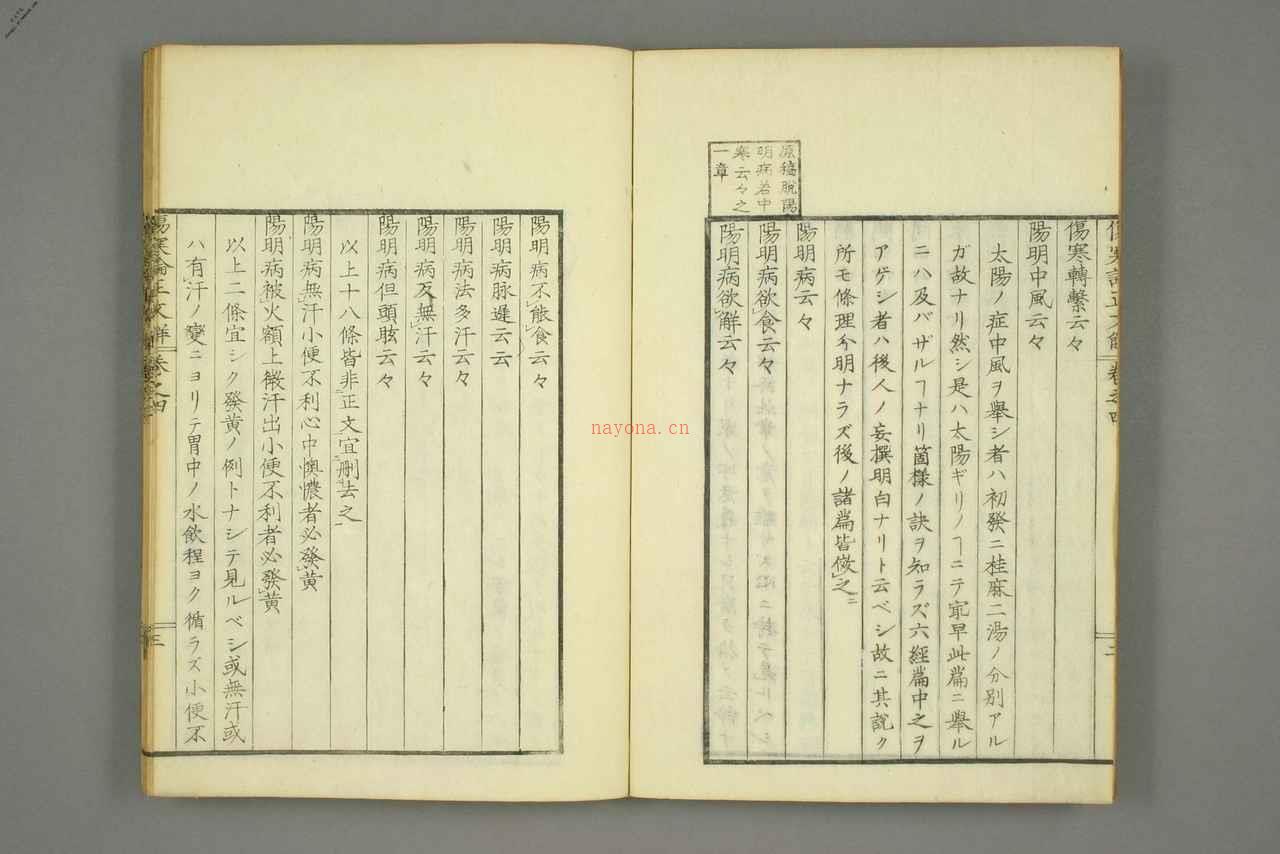 傷寒論正文解 卷之四 二
傷寒轉繫云々
陽明中風云々
太陽ノ症中風ヲ舉シ者ハ初發ニ桂麻二湯ノ分別アル
ガ故ナリ然シ是ハ太陽ギリノヿニテ最早此篇ニ舉ル
ニハ及バザルヿナリ箇樣ノ訣ヲ知ラズ六經篇中之ヲ
アゲシ者ハ後人ノ妄撰明白ナリト云ベシ故ニ其說ク
所モ條理分明ナラズ後ノ諸篇皆倣之
陽明病云々
原稿脫陽
明病若中
寒云々之
一章
陽明病欲食云々
陽明病欲解云々
陽明病不能食云々
陽明病脉遲云云
陽明病法多汗云々
陽明病反無汗云々
陽明病但頭眩云々
以上十八條皆非正文宜刪去之
陽明病無汗小便不利心中懊憹者必發黃
陽明病被火額上微汗出小便不利者必發黃
以上二條宜シク發黃ノ例トナシテ見ルベシ或無汗或
ハ有汗ノ變ニヨリテ胃中ノ水飲程ヨク循ラズ小便不
傷寒論正文解 卷之四 三
nayona.cn